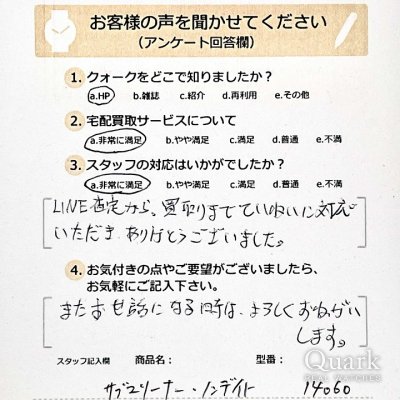 お客様の声を聞かせてください
(アンケート回答欄)
1. クォークをどこで知りましたか?
a.HP b.雑誌 c.紹介 d.再利用 e.その他
2. 宅配買取サービスについて
a.非常に満足 b.やや満足 c.満足 d.普通 e.不満
3. スタッフの対応はいかがでしたか?
a.非常に満足 b.やや満足 c.満足 d.普通 e.不満
LINE査定から、買取りまでていねいに対応
いただき ありがとうございました。
4. お気付きの点やご要望がございましたら、
お気軽にご記入下さい。
またお世話になる時は、よろしくおねがい
します。
スタッフ記入欄 商品名: 型番:
サブマリーナー・ノンデイト 14060
Quark
REAL WATCHES